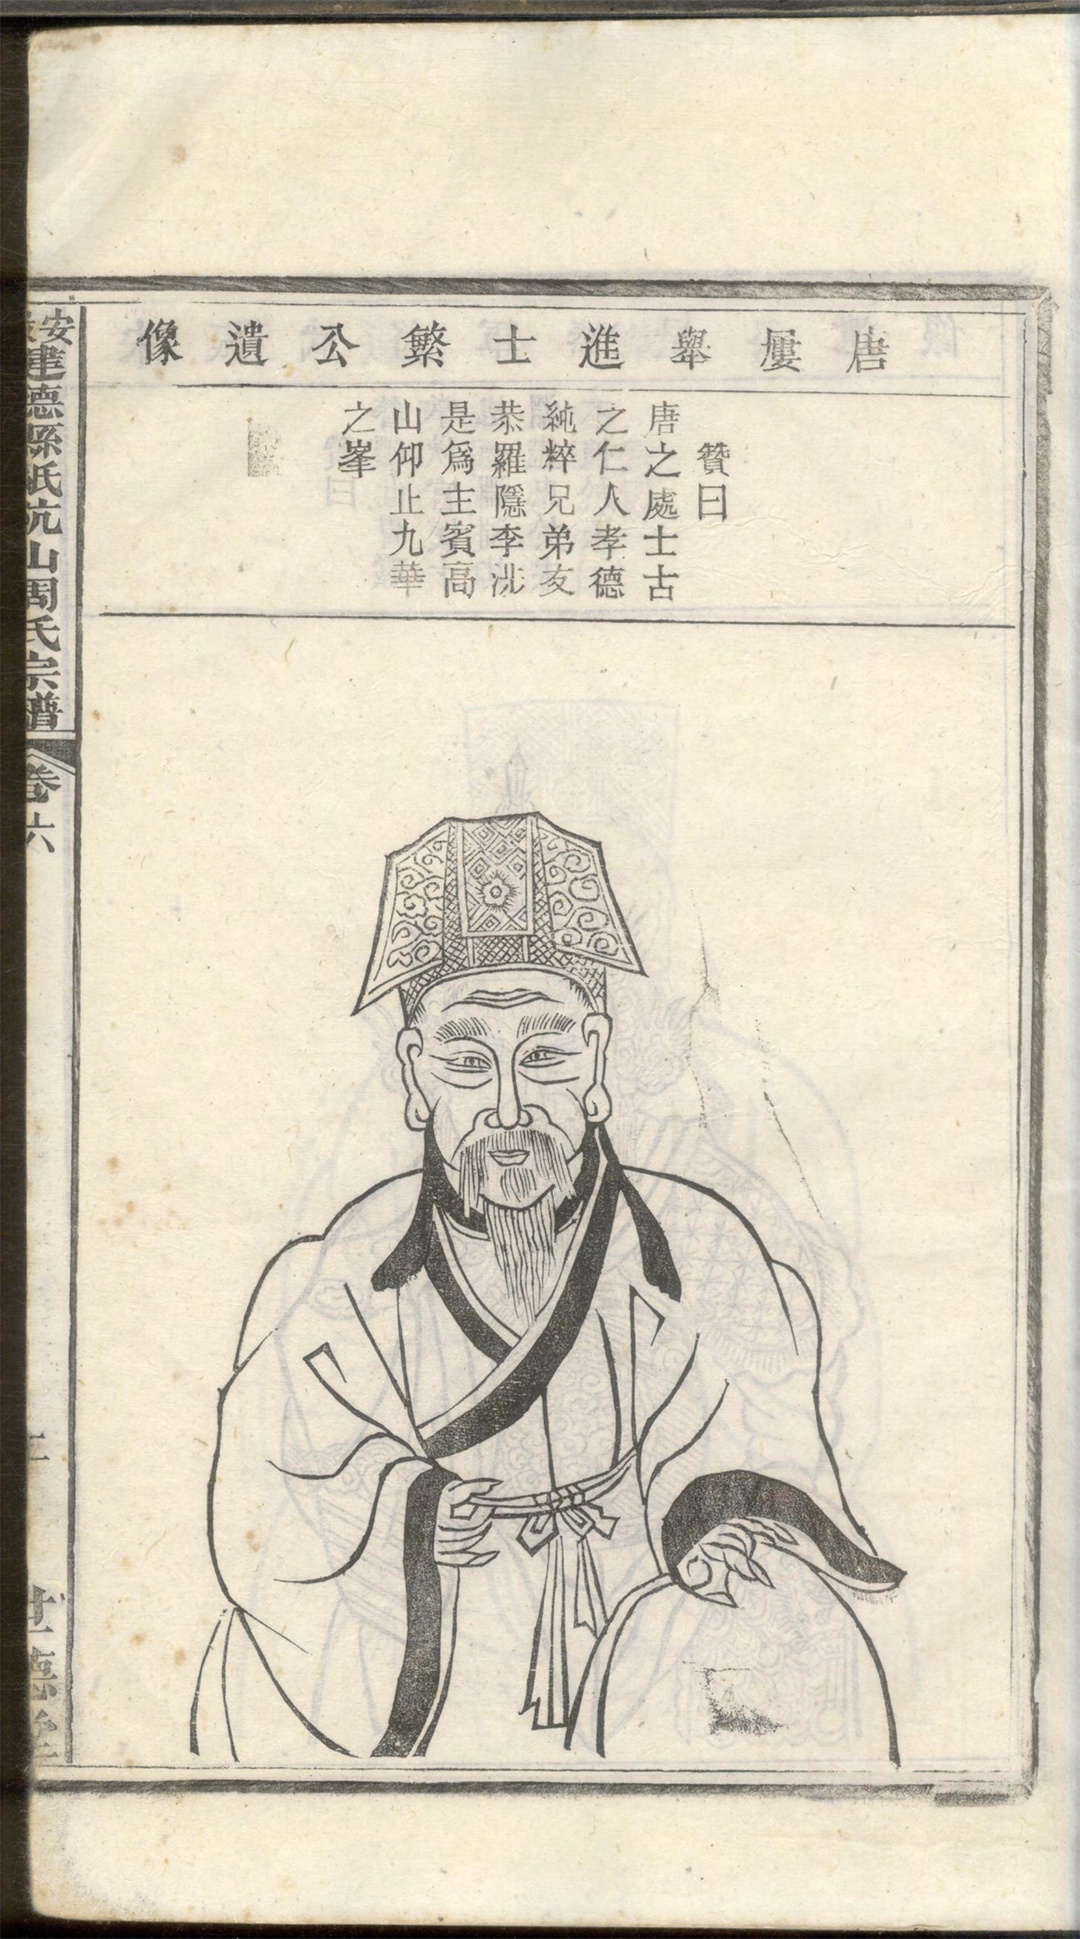 唐屢舉進士繁公遺像
贊曰
唐之處士古
之仁人孝德
純粹兄弟友
恭羅隱李洮
是爲主賓高
山仰止九華
之峯
安
建德縣紙坑山周氏宗譜
卷六
世德堂